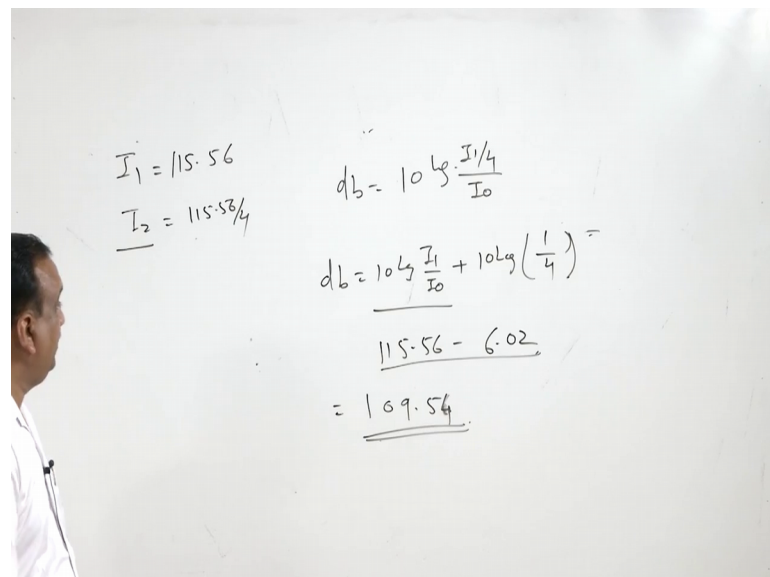 I1 = 115.56
I2 = 115.56/4
db = 10 log I1/4 / I0
db = 10 log I1/I0 + 10 log (1/4) =
115.56 - 6.02
= 109.54